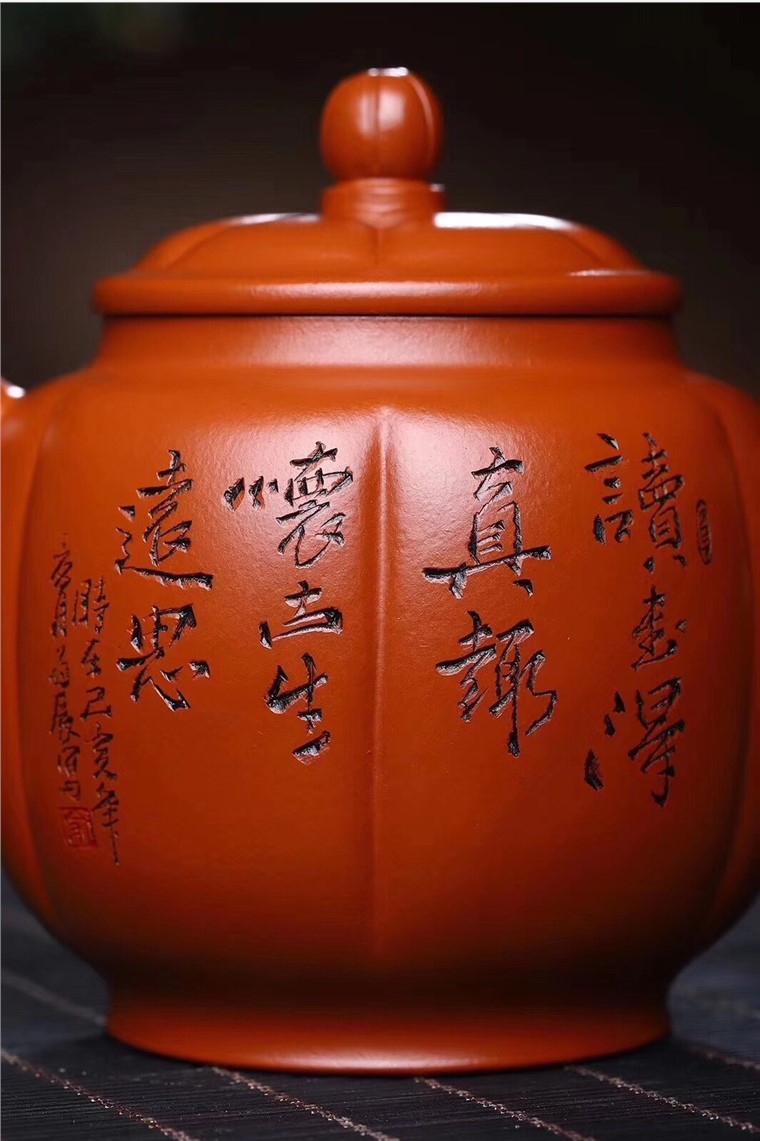 讀書得
真趣
懷古生
遠思
時在己亥年